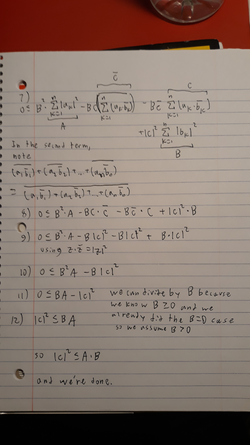 C̄
C
7)
0 ≤ B² Σ_{k=1}^{n} |a_k|² - BC (Σ_{k=1}^{n} (ā_k b_k)) - BC̄ Σ_{k=1}^{n} (a_k · b̄_k)
A
+ |c|² Σ_{k=1}^{n} |b_k|²
B
In the second term,
note
= (a₁ b̄₁) + (a₂ b̄₂) + ... + (aₙ b̄ₙ)
8) 0 ≤ B²·A - BC·C̄ - BC̄·C + |c|²·B
9) 0 ≤ B²·A - B|c|² - B|c|² + B·|c|²
using z·z̄ = |z|²
10) 0 ≤ B²A - B|c|²
11) 0 ≤ BA - |c|² we can divide by B because
we know B ≥ 0 and we
12) |c|² ≤ BA already did the B=0 case
so we assume B > 0
so |c|² ≤ A·B
and we're done.